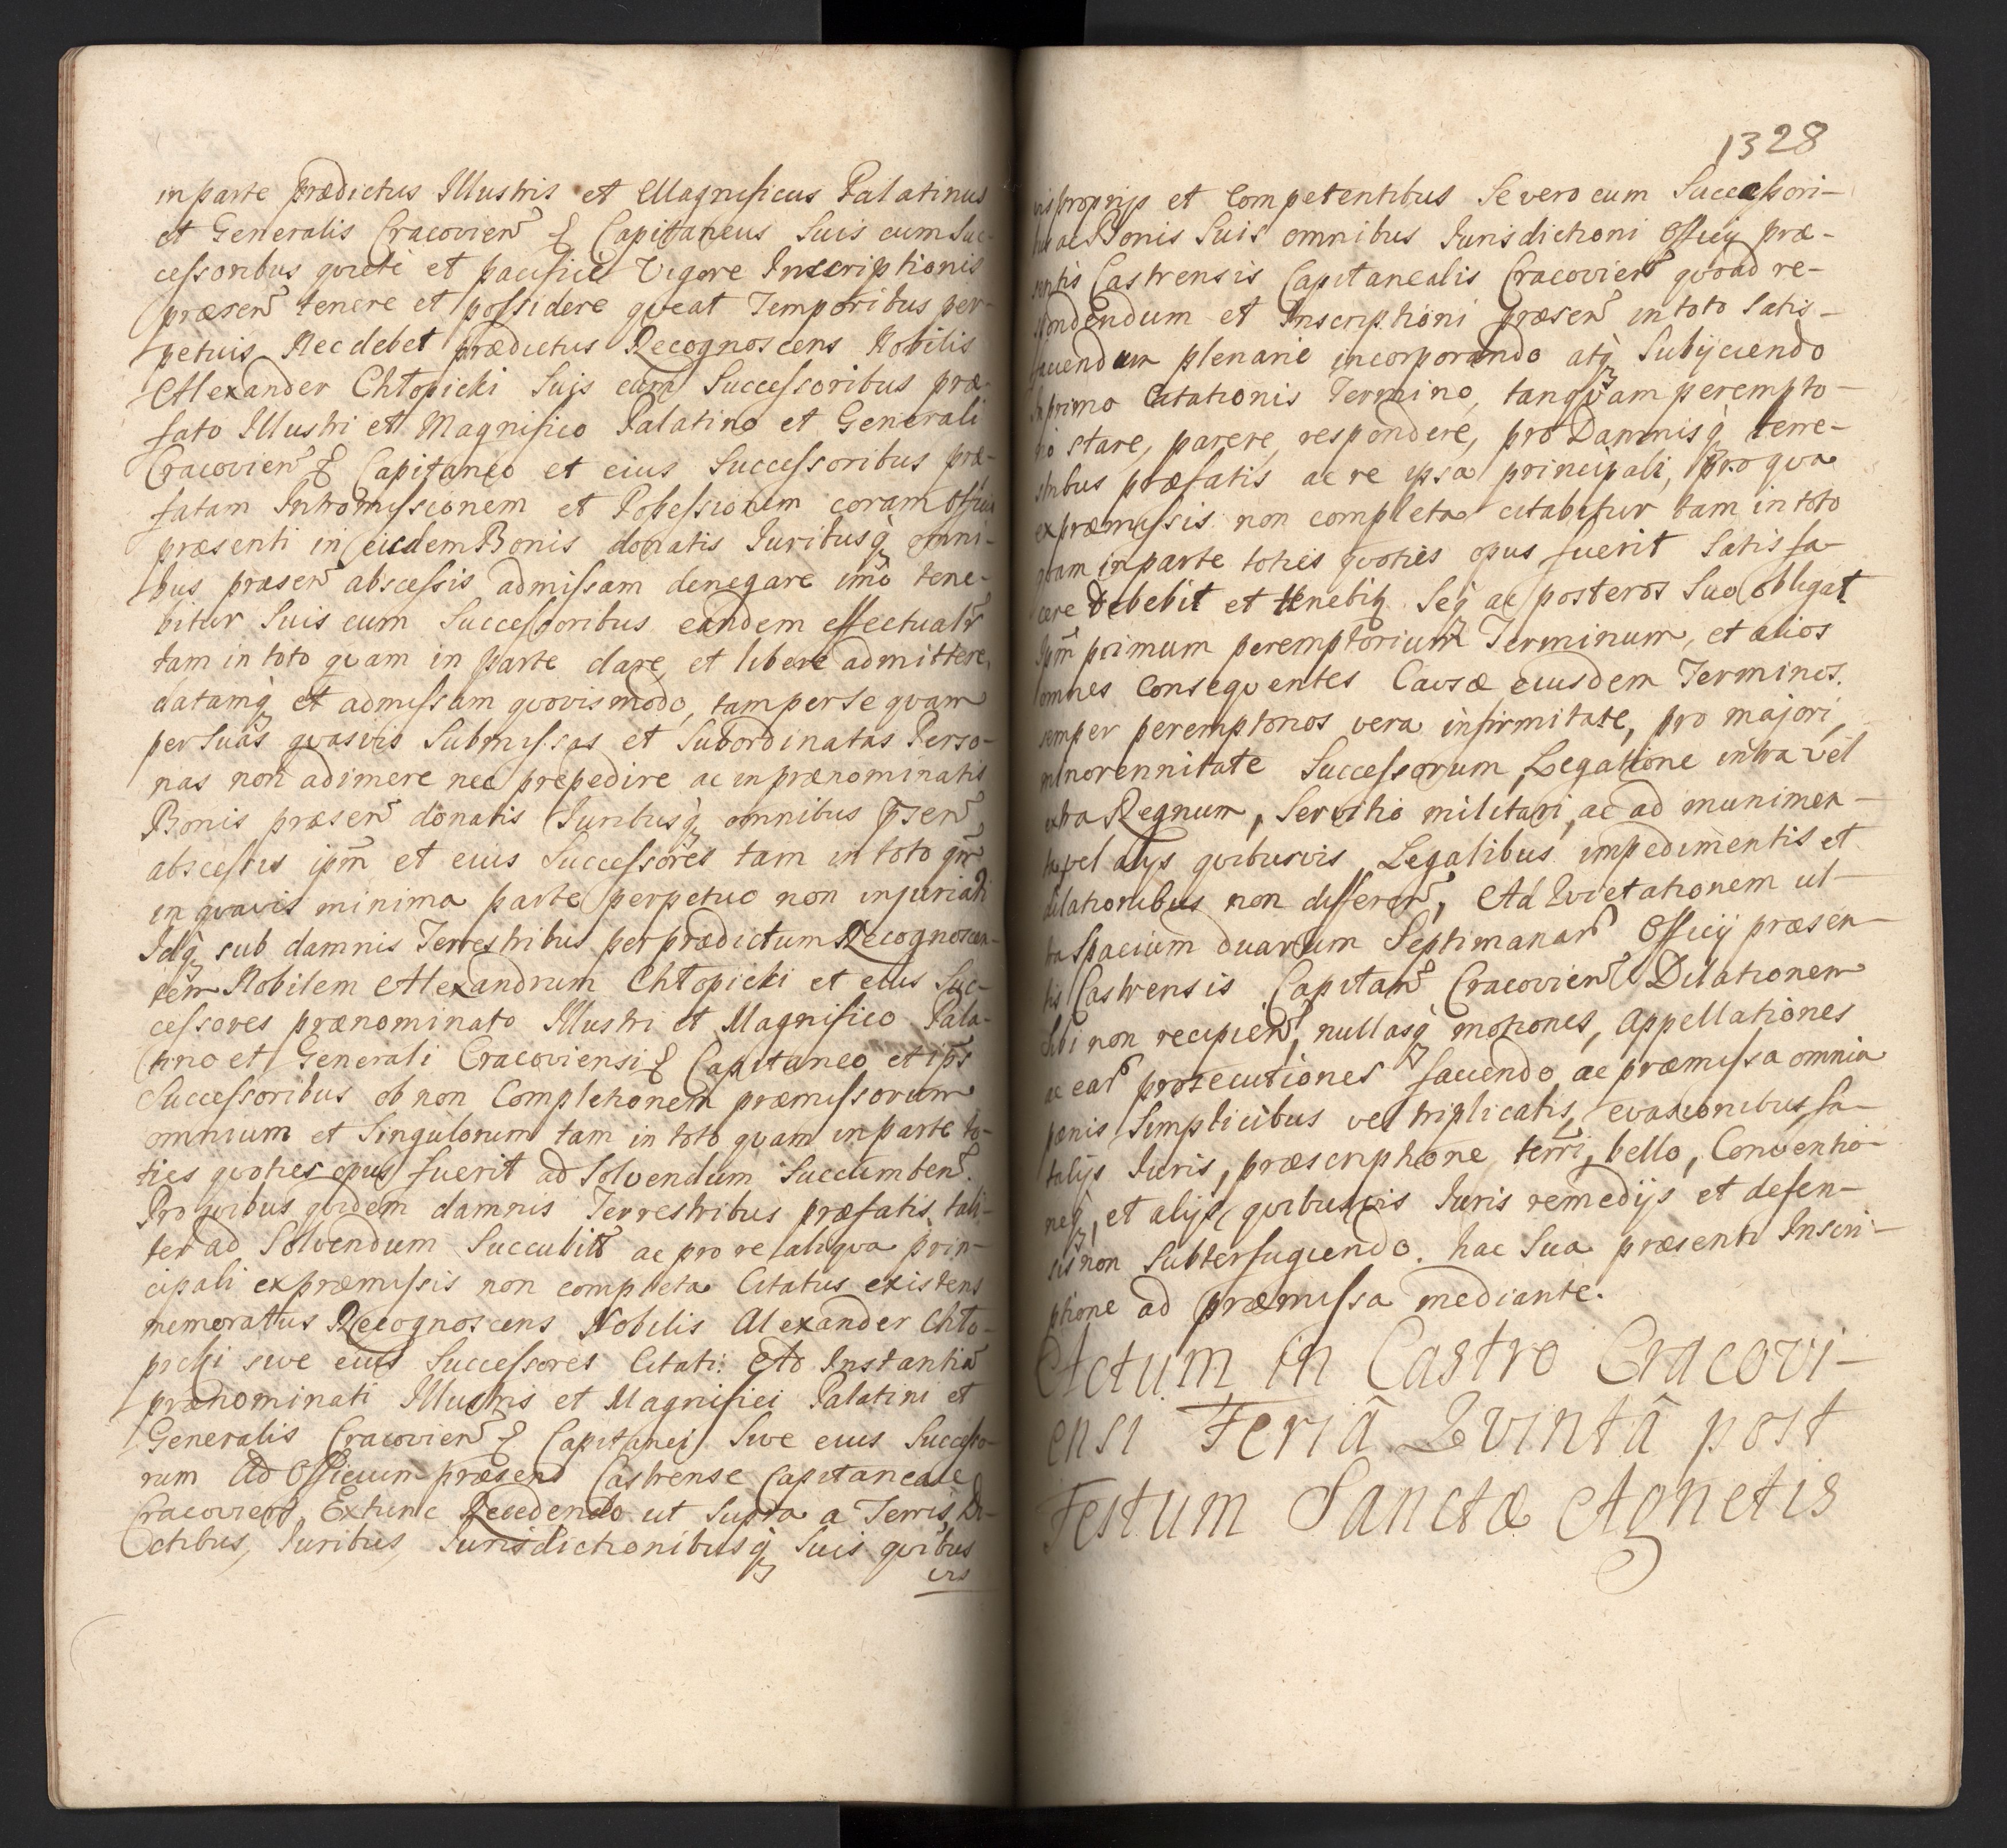 in parte prædictus Illustris et Magnificus Palatinus
et Generalis Cracovien̄ & Capitaneus Suis cum Suc-
cessoribus quiete et pacifice Vigore Inscriptionis
præsen̄ tenere et possidere queat Temporibus per-
petuis Nec debet prædictus Recognoscens Nobilis
Alexander Chłopicki Suis cum Successoribus præ-
fato Illustri et Magnifico Palatino et Generali
Cracovien̄ & Capitaneo et eius Successoribus præ-
fatam Intromissionem et Possessionem coram Officio
præsenti in eisdem Bonis donatis Juribusq̨ omni-
bus præsen̄ abscessis admissam denegare imò tene-
bitur Suis cum Successoribus eandem effectualr̄
tam in toto quam in parte dare, et libere admittere,
datamq̨ et admissam quovis modo, tam per se quam
per Suas quasvis Submissas et Subordinatas Perso-
nas non adimere nec præpedire ac in prænominatis
Bonis præsen̄ donatis Juribusq̨ omnibus p̄sen̄
abscessis ipm̄ et eius Successores tam in toto qm̄
in quavis minima parte perpetuo non injuriari
Idq̨ sub damnis Terrestribus per prædictum Recognoscen-
tem Nobilem Alexandrum Chłopicki et eius Suc-
cessores prænominato Illustri et Magnifico Pala-
tino et Generali Cracoviensi & Capitaneo et ips̄
Successoribus ob non Completionem præmissorum
omnium et Singulorum tam in toto quam in parte to-
ties quoties opus fuerit ad Solvendum Succumben̄.
Pro quibus quidem damnis Terrestribus præfatis tali-
ter ad Solvendum Succubit̄ ac pro re aliqua prin-
cipali ex præmissis non completa Citatus existens
memoratus Recognoscens Nobilis Alexander Chło-
picki sive eius Successores Citati Ad Instantiā
prænominati Illustris et Magnifici Palatini et
Generalis Cracovien̄ & Capitanei Sive eius Successo-
rum Ad Officium præsens Castrense Capitaneale
Cracovien̄, Extunc Recedendo ut Supra a Terris, Di-
ctibus, Juribus Jurisdictionibusq̨ Suis quibus
vis
1328
vis proprijs et Competentibus Se vero cum Successori-
bus ac Bonis Suis omnibus Jurisdictioni Officij præ-
sentis Castrensis Capitanealis Cracovien̄ quoad re-
spondendum et Inscriptioni præsen̄ in toto Satis-
faciendum plenarie incorporando atq̨ Subijciendo
In primo Citationis Termino, tanquam perempto-
rio stare, parere, respondere, pro Damnisq̨ terre-
stribus præfatis ac re ipsa principali, Pro qua
ex præmissis non completa citabitur tam in toto
quam in parte toties quoties opus fuerit Satisfa-
cere Debebit et tenebitꝶ Seq̨ ac posteros Suos obligat
Ipm̄ primum peremptorium Terminum, et alios
omnes Consequentes Causæ eiusdem Terminos.
semper peremptorios vera infirmitate, pro majori,
minorennitate Successorum, Legatione intra vel
extra Regnum, Servitio militari, ac ad munimen-
ta, vel alijs quibusvis Legalibus impedimentis et
dilationibus non differen̄, Ad Evictationem ul-
tra Spacium duarum Septimanar̄ Officij præsen-
tis Castrensis Capitan̄ Cracovien̄ Dilationem
Sibi non recipien̄, nullasq̨ motiones, Appellationes
ac ear̄ prosecutiones faciendo ac præmissa omnia
pænis Simplicibus vel triplicatis, evasionibus, fa-
talijs Juris, præscriptione terr̄i, bello, Conventio-
neq̨, et alijs quibusvis Juris remedijs et defen-
sis non Subterfugiendo. hac Sua præsenti Inscri-
ptione ad præmissa mediante.
Actum in Castro Cracovi-
ensi Feriâ Qvintâ post
Festum Sanctæ Agnetis